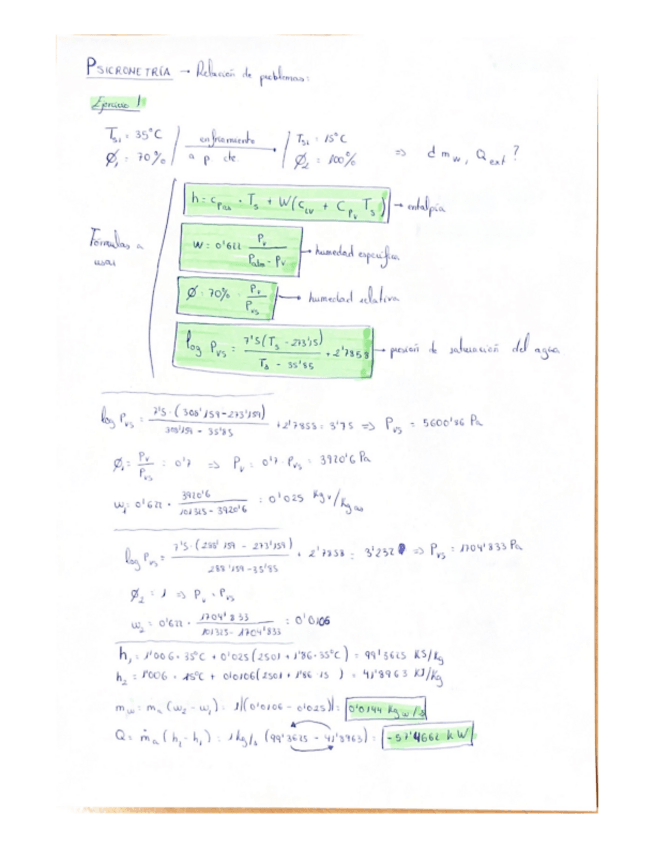 PSICROMETRÍA → Relación de problemas:
Ejercicio 1
Ts1 = 35°C | enfriamiento a p. cte. → | Ts2 = 15°C ⇒ ¿ mw, Qext ?
Ø1 = 70% | | Ø2 = 100%
Fórmulas a usar
h = cpas · Ts + W(cLv + Cpv Ts) → entalpía
W = 0'622 Pv / (Patm - Pv) → humedad específica
Ø = 70% = Pv / Pvs → humedad relativa
log Pvs = 7'5(Ts - 273'15) / (Ts - 35'85) + 2'7858 → presión de saturación del agua
log Pvs = 7'5 · (308'159 - 273'159) / (308'159 - 35'85) + 2'7858 = 3'75 ⇒ Pvs = 5600'86 Pa
Ø1 = Pv / Pvs = 0'7 ⇒ Pv = 0'7 · Pvs = 3920'6 Pa
w1 = 0'622 · 3920'6 / (101325 - 3920'6) = 0'025 Kgv/Kgas
log Pvs = 7'5 · (288'159 - 273'159) / (288'159 - 35'85) + 2'7858 = 3'232 ⇒ Pvs = 1704'833 Pa
Ø2 = 1 ⇒ Pv = Pvs
w2 = 0'622 · 1704'833 / (101325 - 1704'833) = 0'0106
h1 = 1'006 · 35°C + 0'025(2501 + 1'86 · 35°C) = 99'3625 KJ/Kg
h2 = 1'006 · 15°C + 0'0106(2501 + 1'86 · 15) = 41'8963 KJ/Kg
mw = ma (w2 - w1) = 1|(0'0106 - 0'025)| = 0'0144 Kgw/s
Q = ṁa (h2 - h1) = 1 kg/s (99'3625 - 41'8963) = -57'4662 kW